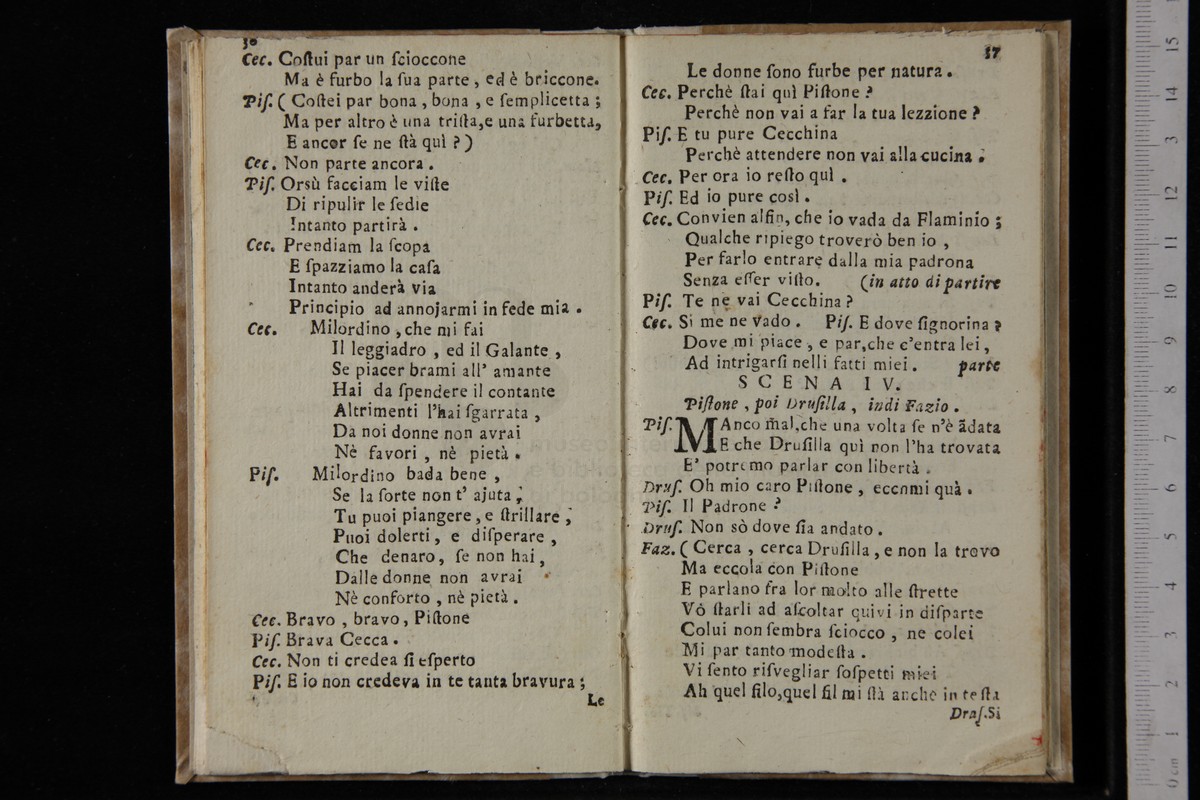 36
Cec. Coſtui par un ſcioccone
Ma è furbo la ſua parte , ed è briccone.
Piſ. ( Coſtei par bona , bona , e ſemplicetta ;
Ma per altro è una triſta,e una furbetta,
E ancor ſe ne ſtà quì ? )
Cec. Non parte ancora .
Piſ. Orsù facciam le viſte
Di ripulir le ſedie
Intanto partirà .
Cec. Prendiam la ſcopa
E ſpazziamo la caſa
Intanto anderà via
Principio ad annojarmi in fede mia .
Cec. Milordino , che mi fai
Il leggiadro , ed il Galante ,
Se piacer brami all' amante
Hai da ſpendere il contante
Altrimenti l'hai ſgarrata ,
Da noi donne non avrai
Nè favori , nè pietà .
Piſ. Milordino bada bene ,
Se la ſorte non t' ajuta ;
Tu puoi piangere , e ſtrillare ;
Puoi dolerti , e diſperare ,
Che denaro, ſe non hai,
Dalle donne non avrai
Nè conforto , nè pietà .
Cec. Bravo , bravo , Piſtone
Piſ. Brava Cecca .
Cec. Non ti credea ſi eſperto
Piſ. E io non credeva in te tanta bravura ;
Le
37
Le donne ſono furbe per natura .
Cec. Perchè ſtai quì Piſtone ?
Perchè non vai a far la tua lezzione ?
Piſ. E tu pure Cecchina
Perchè attendere non vai alla cucina .
Cec. Per ora io reſto quì .
Piſ. Ed io pure così .
Cec. Convien alfin, che io vada da Flaminio ;
Qualche ripiego troverò ben io ,
Per farlo entrare dalla mia padrona
Senza eſſer viſto. (in atto di partire
Piſ. Te ne vai Cecchina ?
Cec. Si me ne vado . Piſ. E dove ſignorina ?
Dove mi piace , e par,che c'entra lei ,
Ad intrigarſi nelli fatti miei . parte
SCENA IV.
Piſtone , poi Druſilla , indi Fazio .
Piſ. MAnco m̃al,che una volta ſe n'è ãdata
E che Druſilla quì non l'ha trovata
E' potremo parlar con libertà .
Druſ. Oh mio caro Piſtone , eccomi quà .
Piſ. Il Padrone ?
Druſ. Non sò dove ſia andato .
Faz. ( Cerca , cerca Druſilla , e non la trovo
Ma eccola con Piſtone
E parlano fra lor molto alle ſtrette
Vò ſtarli ad aſcoltar quivi in diſparte
Colui non ſembra ſciocco , ne colei
Mi par tanto modeſta .
Vi ſento riſvegliar ſoſpetti miei
Ah quel filo,quel fil mi ſtà anche in teſta
Druſ.Si